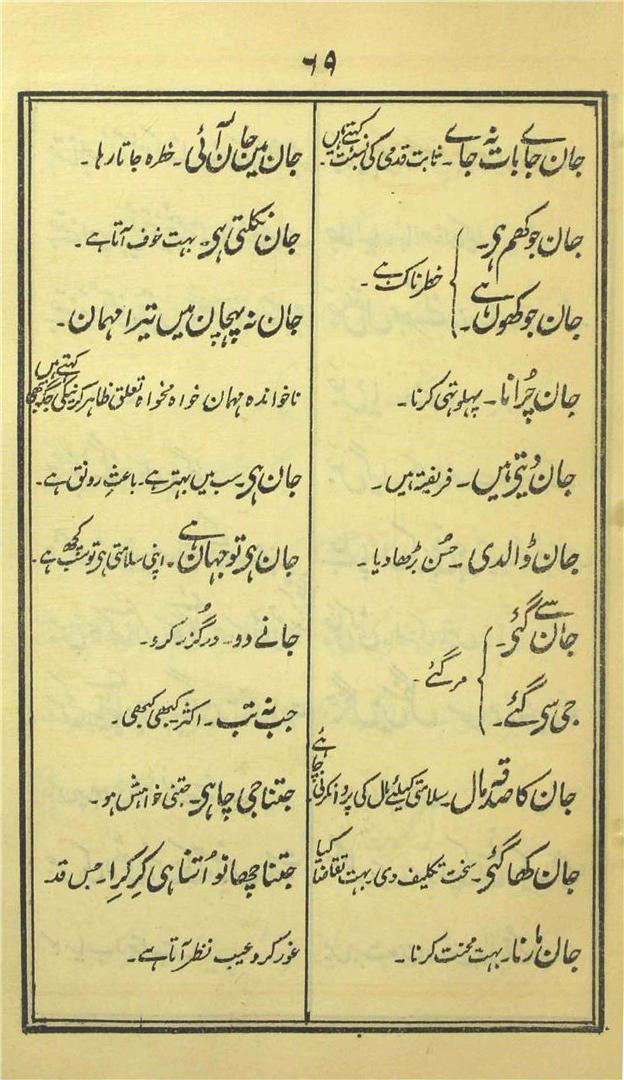 ۶۹
جان جاے بات نہ جاے۔ ثابت قدمی کی نسبت کہتے ہیں۔
جان جوکھم ہی۔
جان جوکھوں ہے۔ } خطرناک ہے۔
جان چُرانا۔ پہلو تہی کرنا۔
جان دیتی ہیں۔ فریفتہ ہیں۔
جان ڈالدی۔ حُسن بڑھا دیا۔
جان سے گئی۔
جی سی گئے۔ } مر گئے۔
جان کا صدقہ مال۔ سلامتی کیلئے مال کی پروا نکرنی چاہئے
جان کھا گئی۔ سخت تکلیف دی۔ بہت تقاضا کیا
جان مارنا۔ بہت محنت کرنا۔
جان مین جان آئی۔ خطرہ جاتا رہا۔
جان نکلتی ہی۔ بہت خوف آتا ہے۔
جان نہ پہچان میں تیرا مہمان۔
ناخواندہ مہمان خواہ مخواہ تعلق ظاہر کرنیکی جگہ کہتے ہیں
جان ہی۔ سب میں بہتر ہے۔ باعثِ رونق ہے۔
جان ہی تو جہان ہے۔ اپنی سلامتی ہی تو سب کچھ ہے۔
جانے دو۔ درگُزر کرو۔
جب نہ تب۔ اکثر کبھی کبھی۔
جتنا جی چاہی۔ جتنی خواہش ہو۔
جتنا چھانو اُتنا ہی کِرکِرا۔ جس قد
غور کرو عیب نظر آتا ہے۔